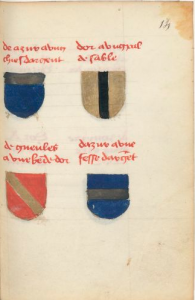 14
de azur a un
chief dargent
dor a un pal
de sable
de gueules
a une bede dor
dazur a une
fesse dargẽt